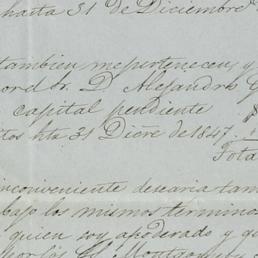 hasta 31 de Diciembre
tambien me pertenecen y
ord Sr. D. Alejandro
capital pendiente
tos hta 31 Dicre de 1847.
Tota
inconveniente desearia tam
bajo los mismos termino
quien soy apoderado y q
por los Montgomery